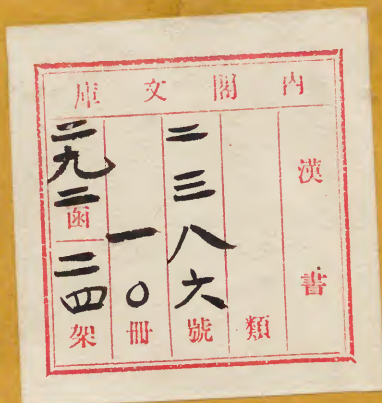 内閣文庫
漢書
類
二三八六號
一〇冊
二九二函
二四架